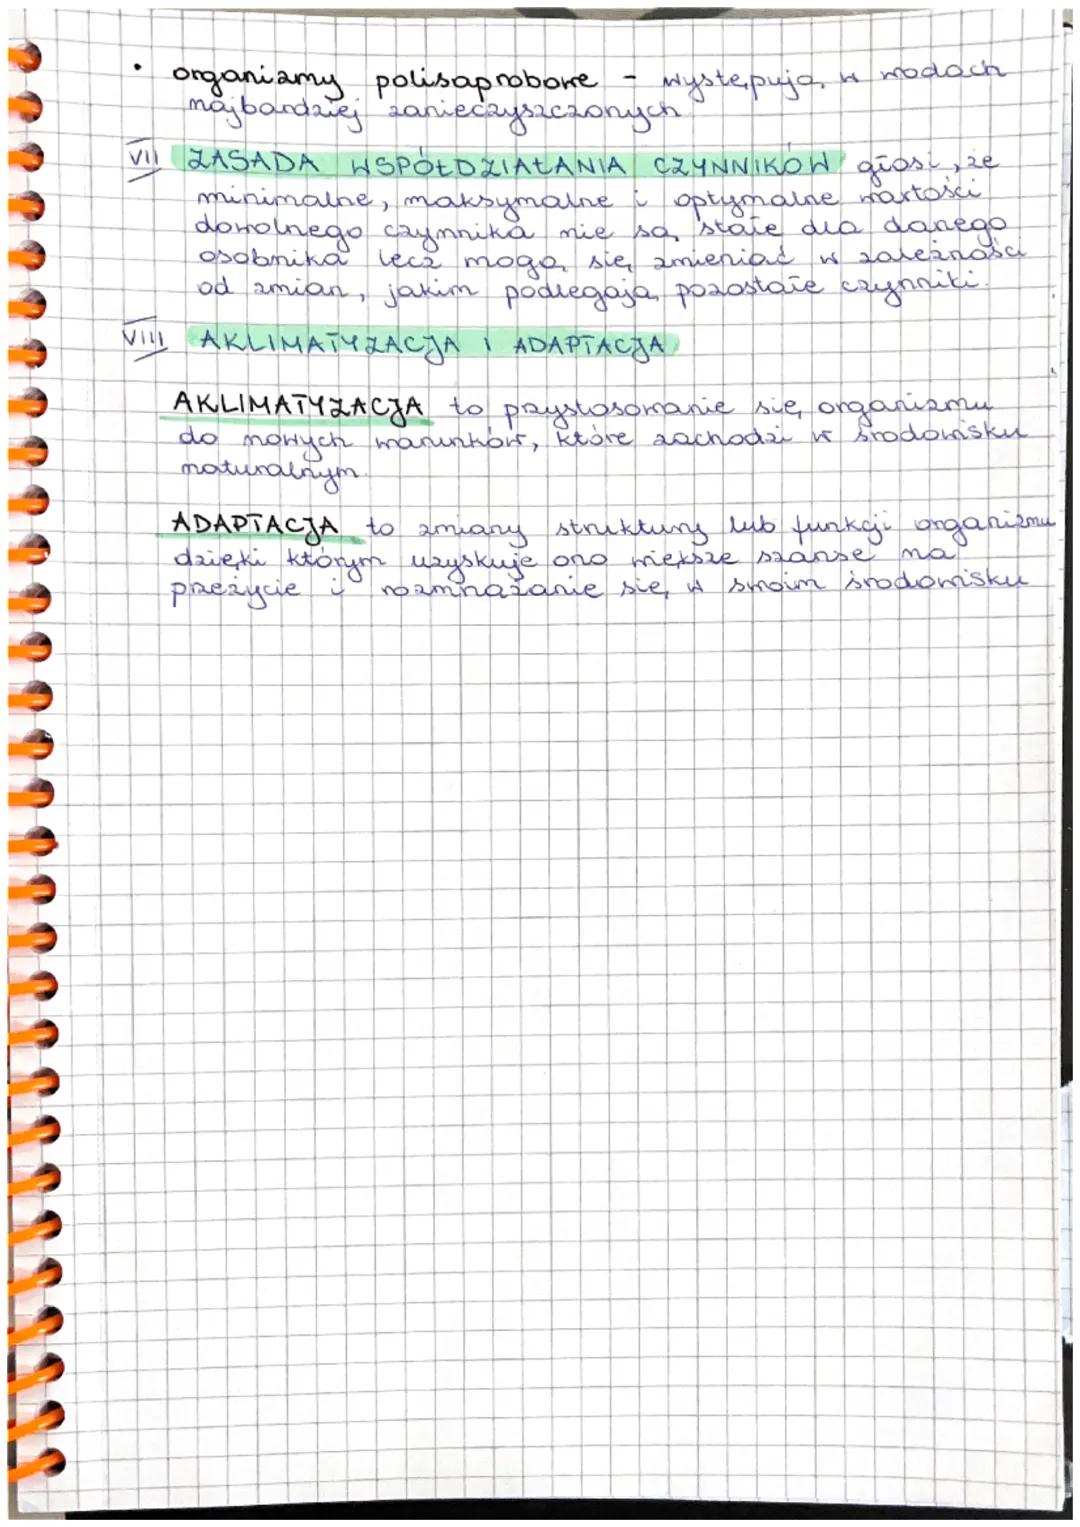 • organizmy polisaprobowe - występują w wodach
najbardziej zanieczyszczonych
VII ZASADA WSPÓŁDZIAŁANIA CZYNNIKÓW głosi, że
minimalne, maksymalne i optymalne wartości
dowolnego czynnika nie są stałe dla danego
osobnika lecz mogą się zmieniać w zależności
od zmian, jakim podlegają pozostałe czynniki.
VIII AKLIMATYZACJA I ADAPTACJA
AKLIMATYZACJA to przystosowanie się organizmu
do nowych warunków, które zachodzi w środowisku
naturalnym.
ADAPTACJA to zmiany struktury lub funkcji organizmu
dzięki którym uzyskuje ono większe szanse na
przeżycie i rozmnażanie się w swoim środowisku